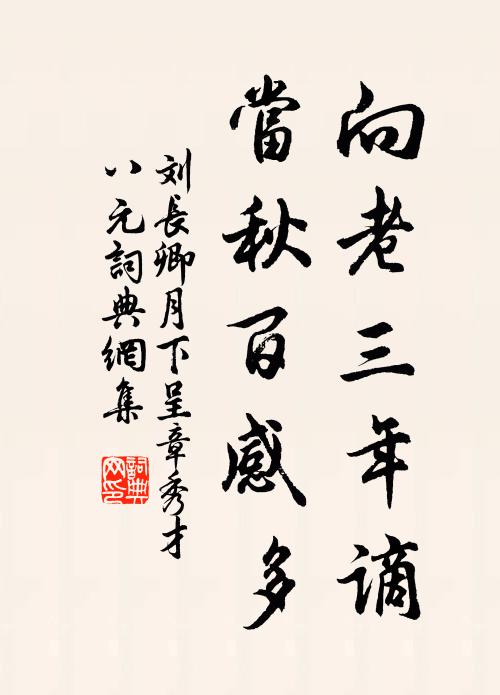 向老三年謫
當秋百感多
刘長卿月下呈章秀才
八元詞典網集
詞典
网印